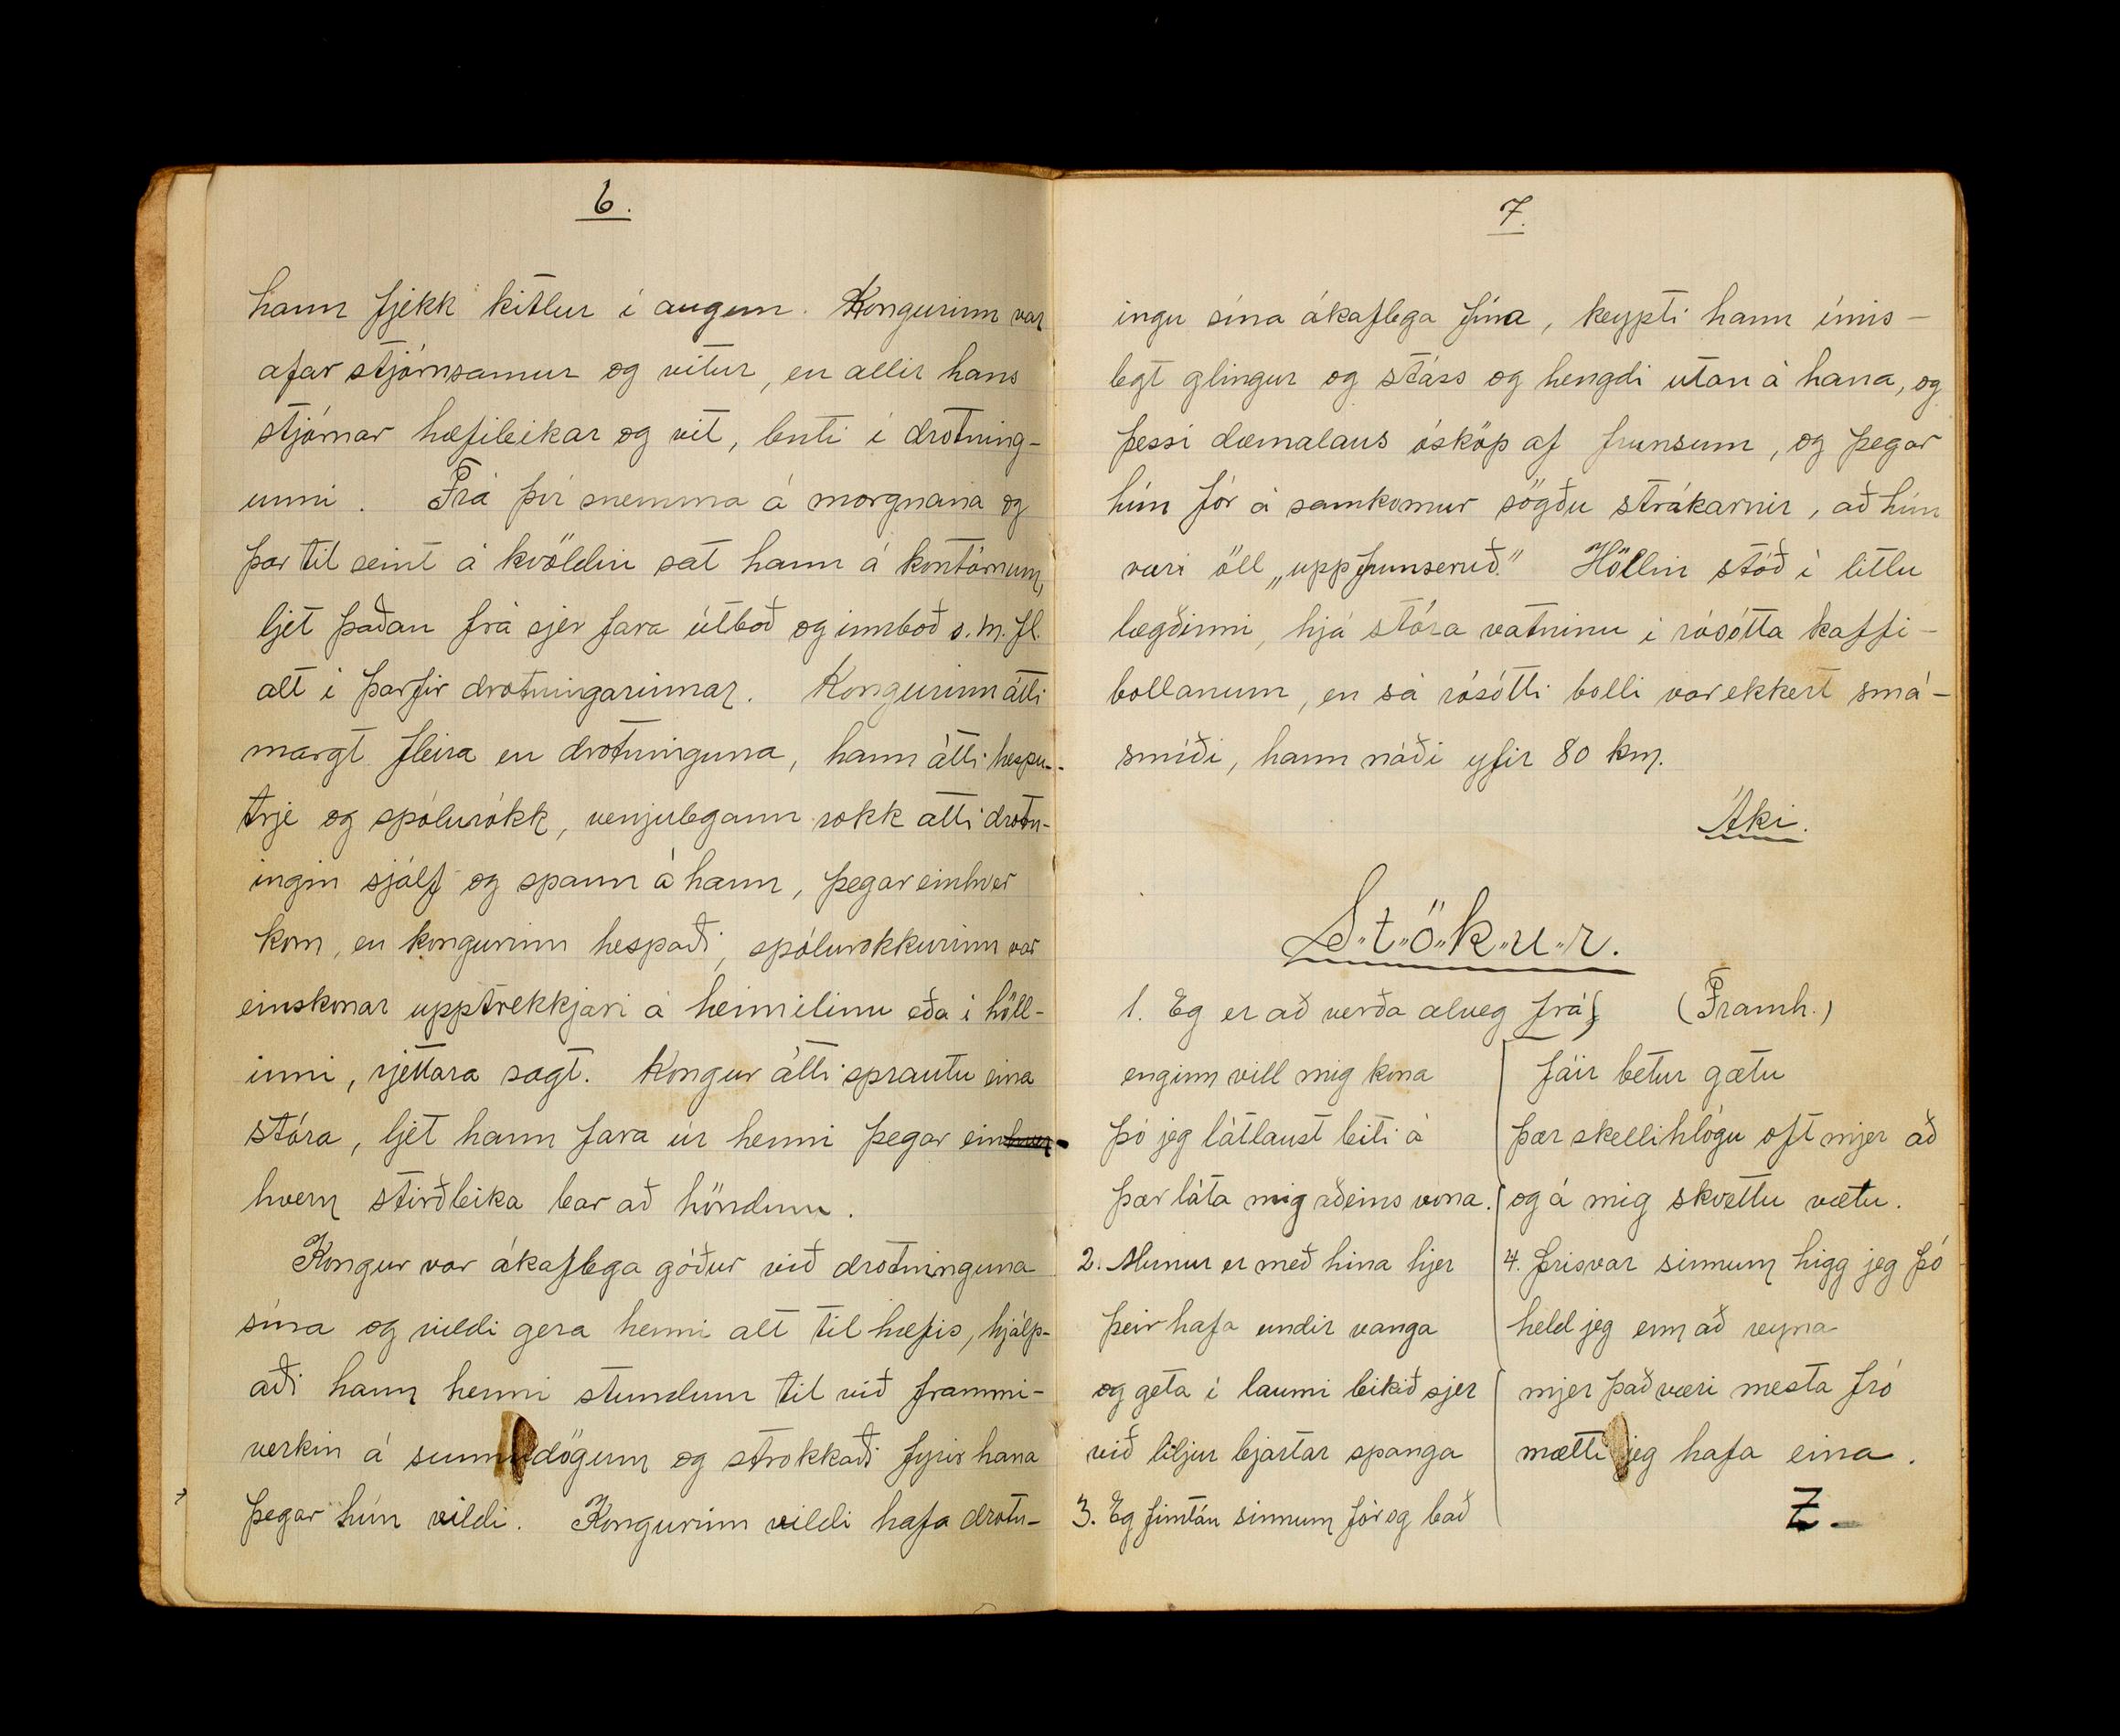 6.
hann fjekk kitlur í augun. Kongurinn var
afar stjórnsamur og vitur, en allir hans
stjórnar hæfileikar og vit, lenti í drotning-
unni. Frá því snemma á morgnana og
þar til seint á kvöldin sat hann á kontórnum,
ljet þaðan frá sjer fara útboð og innboð o. m. fl.
alt í þarfir drotningarinnar. Kongurinn átti
margt fleira en drotninguna, hann átti hespu-
trje og spólurokk, venjulegann rokk átti drotn-
ingin sjálf og spann á hann, þegar einhver
kom, en kongurinn hespaði, spólurokkurinn var
einskonar upptrekkjari á heimilinu eða í höll-
inni, rjettara sagt. Kongur átti sprautu eina
stóra, ljet hann fara úr henni þegar ein-
hvern stirðleika bar að höndum.
Kongur var ákaflega góður við drotninguna
sína og vildi gera henni alt til hæfis, hjálp-
aði hann henni stundum til við frammi-
verkin á sunnudögum og strokkaði fyrir hana
þegar hún vildi. Kongurinn vildi hafa drotn-
7.
ingu sína ákaflega fína, keypti hann ímis-
legt glingur og stáss og hengdi utan á hana, og
þessi dæmalaus ósköp af frunsum, og þegar
hún fór á samkomur sögðu strákarnir, að hún
væri öll „uppfrunseruð." Höllin stóð í litlu
lægðinni, hjá stóra vatninu í rósótta kaffi-
bollanum, en sá rósótti bolli var ekkert smá-
smíði, hann náði yfir 80 km.
Áki.
S"t"ö"k"u"r.
1. Eg er að verða alveg frá (Framh.)
enginn vill mig kona
þó jeg látlaust leiti á
þær láta mig aðeins vona.
2. Munur er með hina hjer
þeir hafa undir vanga
og geta í laumi leikið sjer
við liljur bjartar spanga
3. Eg fimtán sinnum fór og bað
fáir betur gætu
þær skellihlógu oft mjer að
og á mig skvettu vætu.
4. Þrisvar sinnum higg jeg þó
held jeg enn að reyna
mjer það væri mesta fró
mætti jeg hafa eina.
Z-